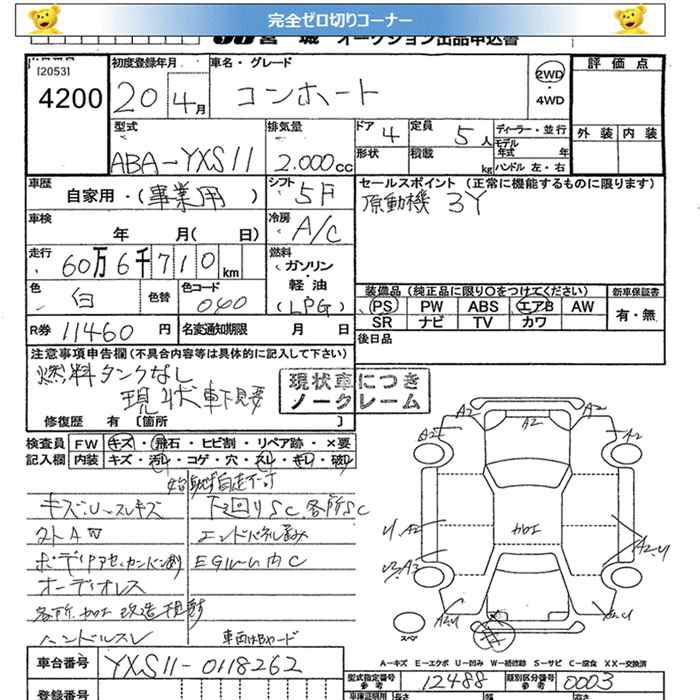 完全ゼロ切りコーナー
宮城 オークション出品申込書
[2053] 初度登録年月 車名・グレード 評価点
4200 20 年 4月 コンホート 2WD ・ 4WD
外装 内装
型式 排気量 ドア 4 定員 5人 ディーラー・並行
モデル年式 年
ABA-YXS11 2.000cc 形状 積載 kg ハンドル 左・右
車歴 シフト セールスポイント (正常に機能するものに限ります)
自家用・(事業用) 5F 原動機 3Y
車検 冷房
年 月( 日) A/C
走行 燃料
60万6千710km ガソリン
軽油
(LPG)
色 色替 色コード 装備品 (純正品に限り○をつけてください) 新車保証書
白 040 PS PW ABS エアB AW 有・無
R券 11460円 名変通知期限 月 日 SR ナビ TV カワ
後日品
注意事項申告欄(不具合内容等は具体的に記入して下さい)
燃料タンクなし
現状車下見要
現状車につき
ノークレーム
修復歴 有 〔箇所 〕
検査員 FW キズ・飛石・ヒビ割・リペア跡・×要
記入欄 内装 キズ・汚レ・コゲ・穴・スレ・キレ・破レ
キズU・スレキズ 下回りSC 各所SC
エンドパネル歪み
EGルーム内C
オーディオレス
ハンドルスレ
A2 A2 A2
A2 A2
U A2 カロエ A2.U
U2.A2
A2U A2.U
W
スペ
A-キズ E-エクボ U-凹み W-補修跡 S-サビ C-腐食 XX-交換済
車台番号 YXS11-0118262
登録番号
型式指定番号 参考 12488 類別区分番号 参考 0003
車庫証明用 長さ 幅 高さ